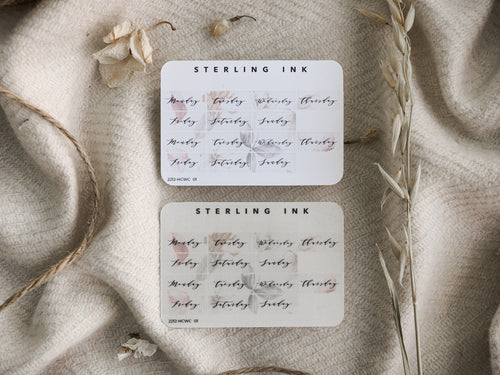 STERLING INK
Monday Tuesday Wednesday Thursday
Friday Saturday Sunday
Monday Tuesday Wednesday Thursday
Friday Saturday Sunday
2212-HCWC 01
STERLING INK
Monday Tuesday Wednesday Thursday
Friday Saturday Sunday
Monday Tuesday Wednesday Thursday
Friday Saturday Sunday
2212-HCWC 01